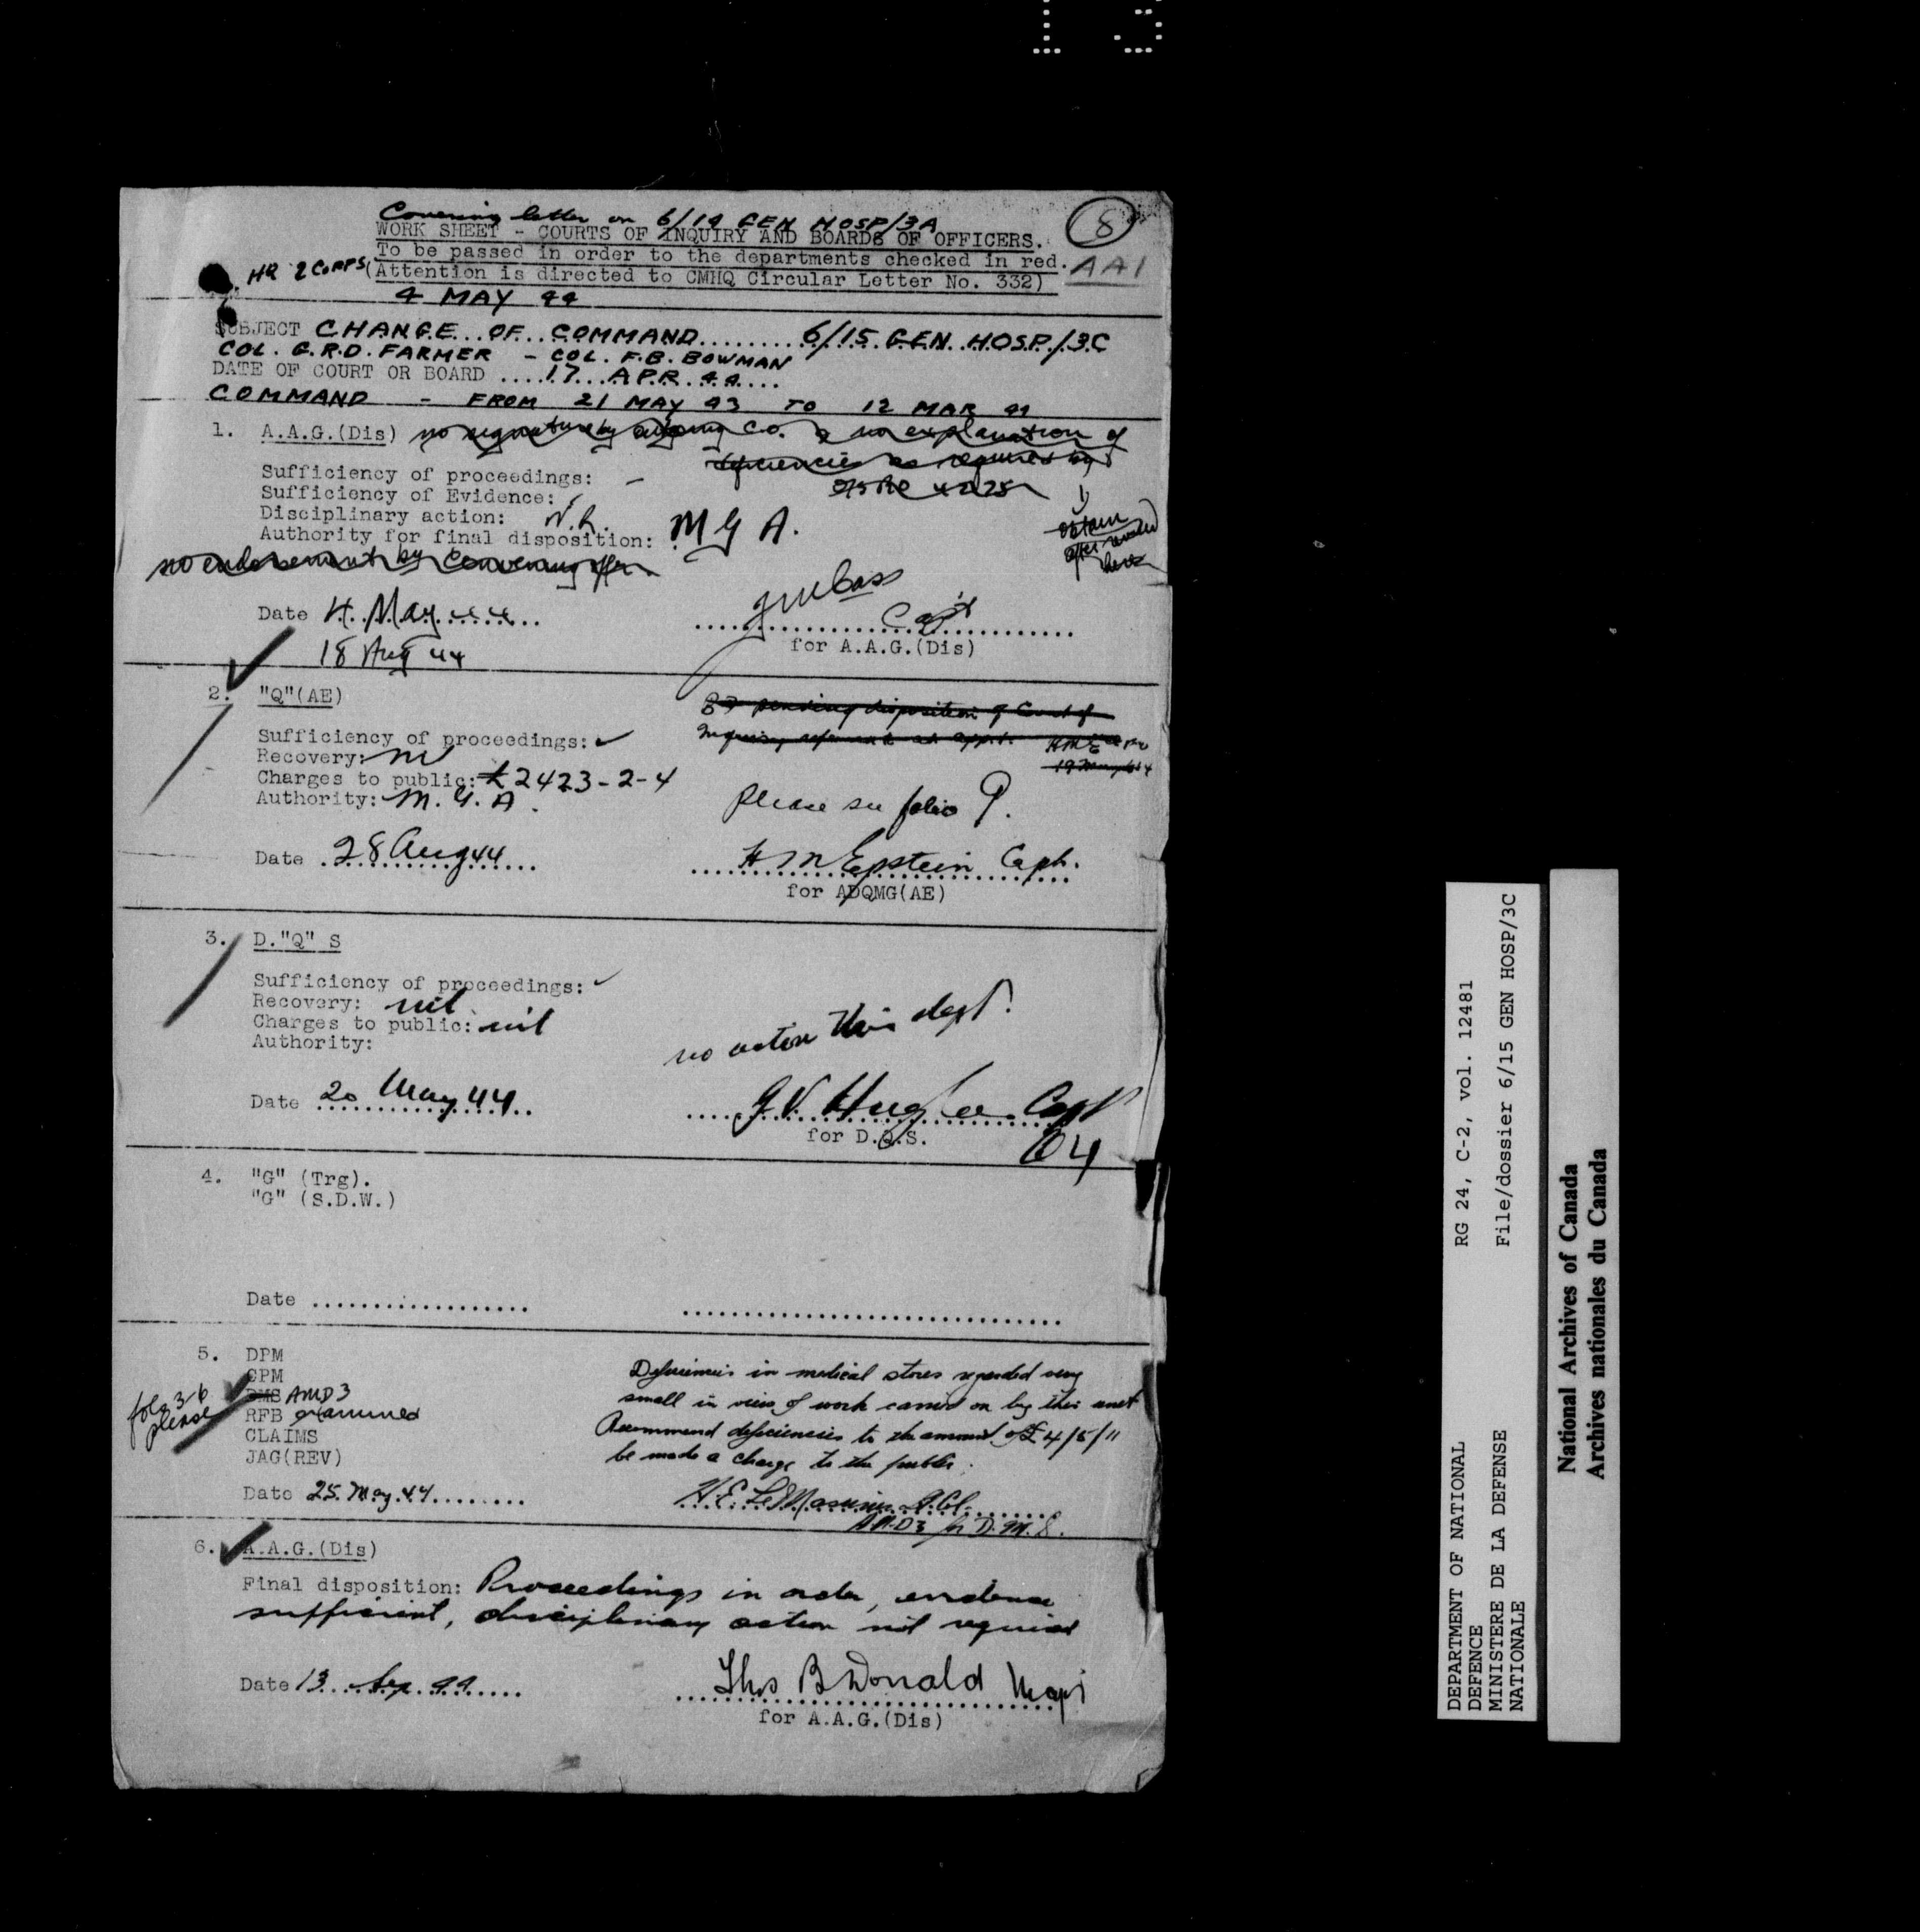 Covering letter on 6/19 GEN HOSP/3A
8
WORK SHEET - COURTS OF INQUIRY AND BOARDS OF OFFICERS.
To be passed in order to the departments checked in red.
AA1
HQ 2 CORPS (Attention is directed to CMHQ Circular Letter No. 332)
4 MAY 44
SUBJECT CHANGE OF COMMAND 6/15 GEN HOSP/3C
COL. G.R.D. FARMER - COL. F.B. BOWMAN
DATE OF COURT OR BOARD 17 APR 44
COMMAND - FROM 21 MAY 43 TO 12 MAR 44
1. A.A.G.(Dis) no signature by outgoing C.O. & no explanation of
deficiencies as required by
Sufficiency of proceedings: -
Sufficiency of Evidence:
Disciplinary action: N.R.
Authority for final disposition: M G A.
obtain
no endorsement by Convening offr
Date 4 May 44
Capt
18 Aug 44
for A.A.G.(Dis)
2. "Q"(AE)
BF pending disposition of Court of
Inquiry referred to
Sufficiency of proceedings: ✓
Recovery: nil
Charges to public: £2423-2-4
19 May 44
Authority: M. G. A.
Please see folio 9.
Date 28 Aug 44
H M Epstein Capt.
for ADQMG(AE)
3. D."Q" S
Sufficiency of proceedings: ✓
Recovery: nil
Charges to public: nil
Authority:
no action this dept.
Date 20 May 44
G V Hughes Capt
for D.Q.S.
4. "G" (Trg).
"G" (S.D.W.)
Date
5. DPM
CPM
DMS AMD3
RFB examined
CLAIMS
JAG(REV)
fols 3-6
please
Deficiencies in medical stores regarded very
small in view of work carried on by this unit
Recommend deficiencies to the amount of £4/5/11
be made a charge to the public.
Date 25 May 44
AMD3 for D.M.S.
6. A.A.G.(Dis)
Final disposition: Proceedings in order, evidence
sufficient, disciplinary action not required
Date 13 Sep 44
Thos B Donald Major
for A.A.G.(Dis)
DEPARTMENT OF NATIONAL
DEFENCE
MINISTERE DE LA DEFENSE
NATIONALE
RG 24, C-2, vol. 12481
File/dossier 6/15 GEN HOSP/3C
National Archives of Canada
Archives nationales du Canada